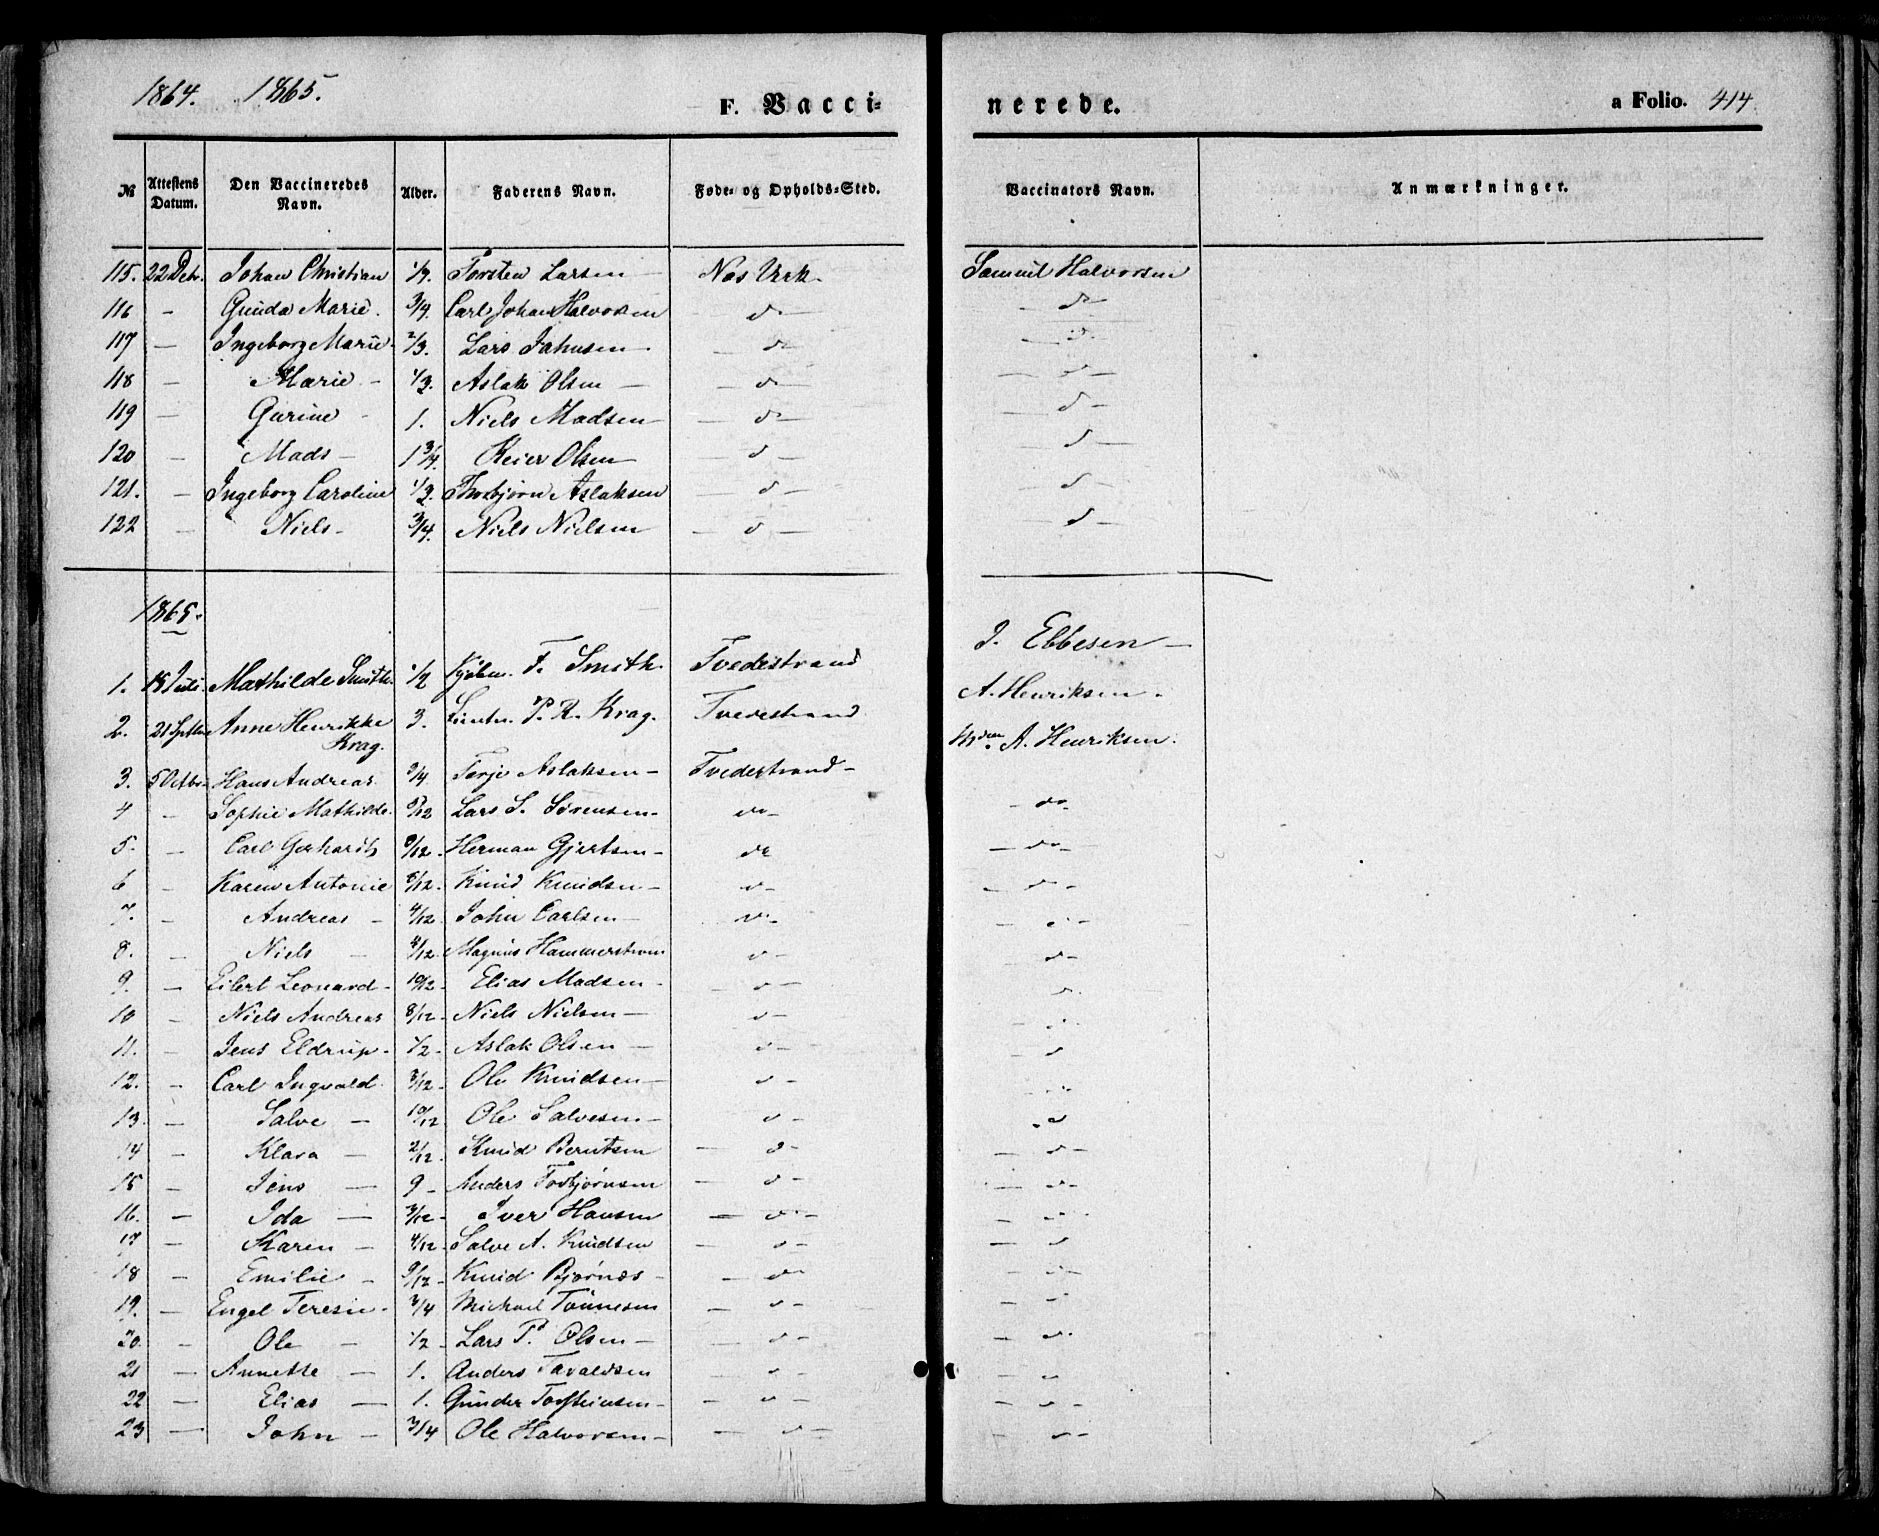 1864. 1865.
F. Vaccinerede.
a Folio. 414.
№ Attestens Datum. Den Vaccineredes Navn. Alder. Faderens Navn. Føde- og Opholds-Sted. Vaccinators Navn. Anmærkninger.
115. 22 Debr. Johan Christian Torsten Larsen — Næs Verk Samuel Halvorsen
116 — Gunda Marie. 3/4. Carl Johan Halvorsen — do — — do —
117 — Ingeborg Marie 2/3. Lars Jahnsen — do — d.
118 — Marie — 1/3. Aslak Olsen — — do — — d —
119 — Gurine — 1. Niels Madsen — — d — — d —
120 — Mads — 1 3/4. Reier Olsen — d — — d —
121. — Ingeborg Caroline 1/2. Thorbjørn Aslaksen — d — — d —
122 — Niels — 3/4. Niels Nielsen — d — — d —
1865.
1. 18 Juli. Mathilde Smith. 1/2 Kjøbm. F. Smith. Tvedestrand J. Ebbesen —
2. 21 Septbr Anne Henrikke Krag. 3. P. R. Krag. Tvedestrand A. Henriksen.
3. 5 Octbr. Hans Andreas. 3/4 Terje Aslaksen — Tvedestrand — A. Henriksen.
4 — Sophie Mathilde. Lars S. Sørensen — do — — do —
5. — Carl Gerhard Herman Gjertsen — do — do —
6 — Karen Antonie Knud Knudsen — d — — d —
7. — Andreas — 4/12 John Carlsen — d — — d —
8. — Niels — Magnus Hammerstrøm d — — d —
9. — Eilert Leonard — 10/12 Elias Madsen — — d — d.
10 — Niels Andreas 8/12 — Niels Nielsen — d — — d —
11. — Jens Eldrup — 1/2 — Aslak Olsen — d — — d
12. — Carl Ingvald 3/12 — Ole Knudsen — d — d —
13. — Salve — 10/12 Ole Salvesen — d — — d
14 — Klara — 2/12 Knud Berntsen — d — — d —
15 — Jens — 9 — Anders Torbjørnsen — d — — d —
16. — Ida — 3/12 Iver Hansen — d — — d —
17 — Karen — 4/12 — Salve A. Knudsen — d — — d
18 — Emilie — 9/12 — Knud Bjørnæs — — d — — d —
19. — Engel Teresie — 3/4 Michael Tønnesen — d — — d —
20. — Ole — 1/2 — Lars P. Olsen — — d — — d.
21 — Annette — 1. Anders Tavaldsen — d — — d
22 — Elias — 1. Gunder Torsteinsen — — d — — d —
23 — John — 3/4 Ole Halvorsen — — d — — d —